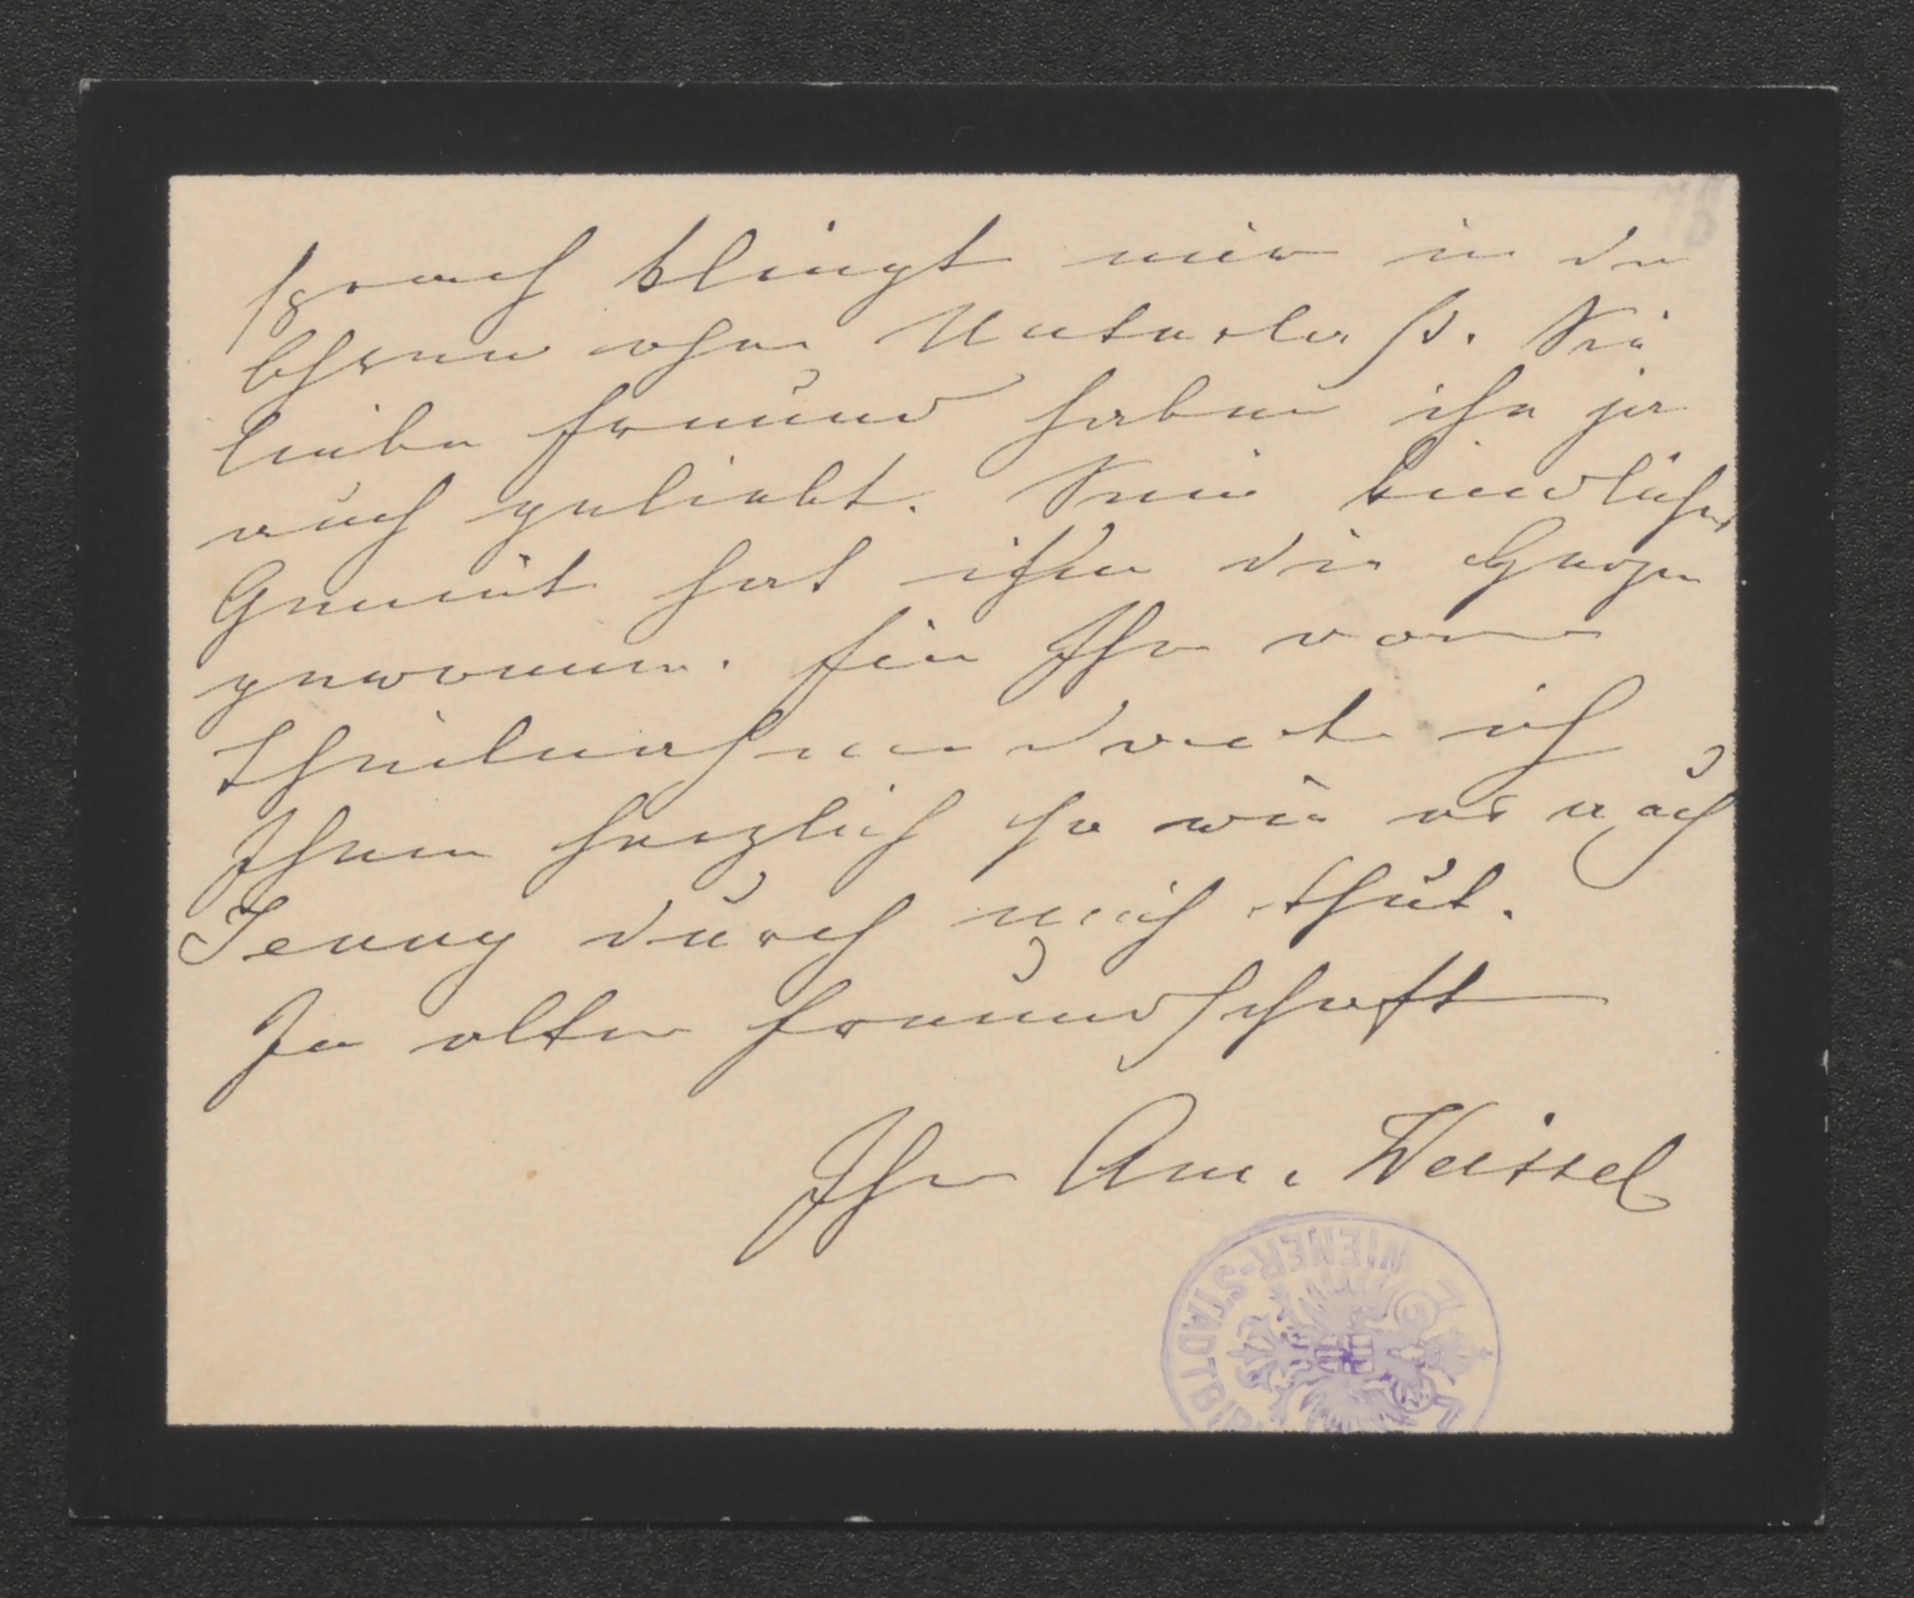 sprach klingt mir in den
Ohren ohne Unterlaß. Sie
lieber Freund haben ihn ja
auch geliebt. Sein kindliches
Gemüt hat ihm die Herzen
gewonnen. Für Ihre warme
Theilnahme dankt ich
Ihnen herzlich so wie es auch
Jenny durch mich thut.
In alter Freundschaft
Ihr Am. Weissel
WIENER-STADTBI